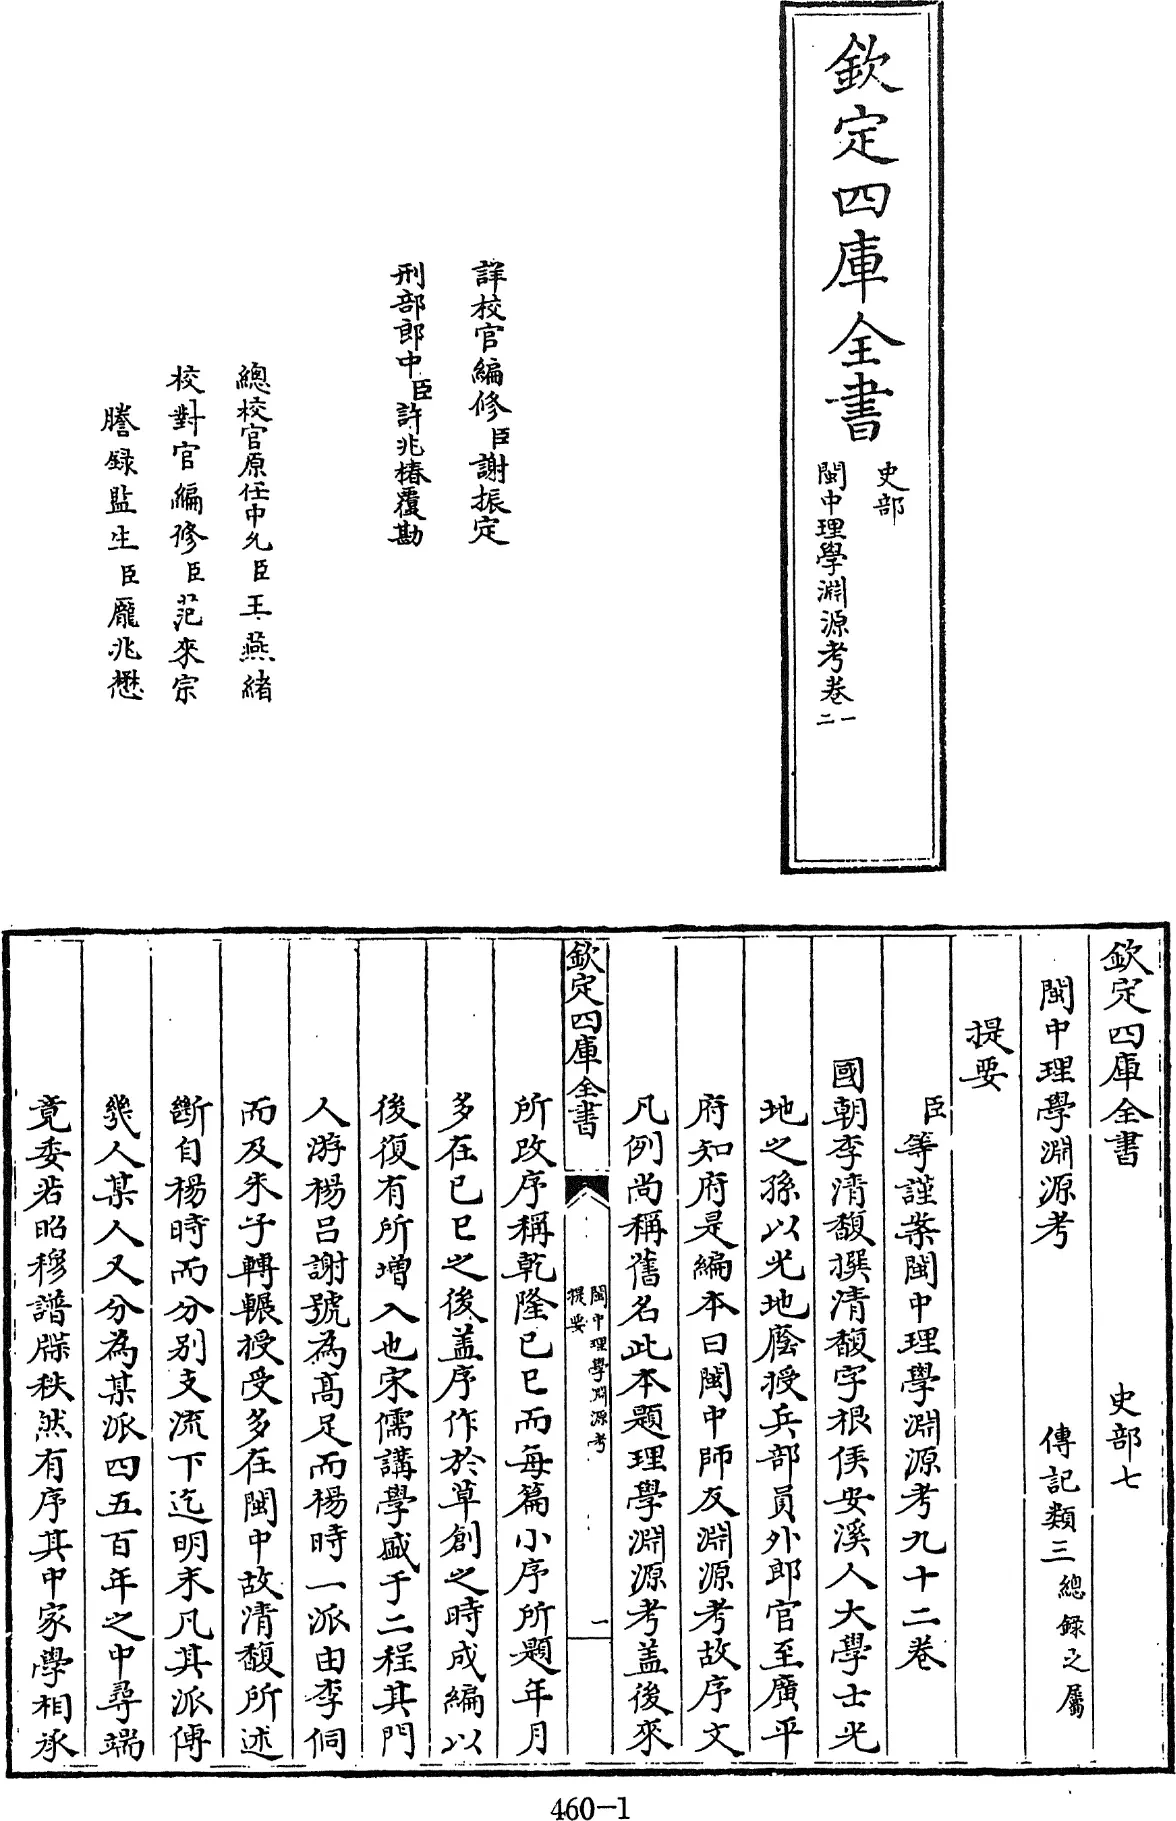 欽定四庫全書
史部
閩中理學淵源考卷一二
詳校官編修臣謝振定
刑部郎中臣許兆椿覆勘
總校官原任中允臣王燕緒
校對官編修臣范來宗
謄録監生臣龎兆懋
欽定四庫全書 史部七
閩中理學淵源考 傳記類三總錄之屬
提要
臣等謹案閩中理學淵源考九十二卷
國朝李清馥撰清馥字根侯安溪人大學士光
地之孫以光地廕授兵部員外郎官至廣平
府知府是編本曰閩中師友淵源考故序文
凡例尚稱舊名此本題理學淵源考盖後來
欽定四庫全書
閩中理學淵源考
提要
一
所改序稱乾隆己巳而每篇小序所題年月
多在己巳之後盖序作於草創之時成編以
後復有所增入也宋儒講學盛于二程其門
人游楊吕謝號為高足而楊時一派由李侗
而及朱子轉輾授受多在閩中故清馥所述
斷自楊時而分別支流下迄明末凡其派傳
幾人某人又分為某派四五百年之中尋端
竟委若昭穆譜牒秩然有序其中家學相承
460-1